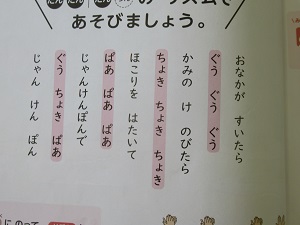 のリズムで
あそびましょう。
おなかが すいたら
ぐう ぐう ぐう
かみの け のびたら
ちょき ちょき ちょき
ほこりを はたいて
ぱあ ぱあ ぱあ
じゃんけんぽんで
ぐう ちょき ぱあ
じゃん けん ぽん
にのって